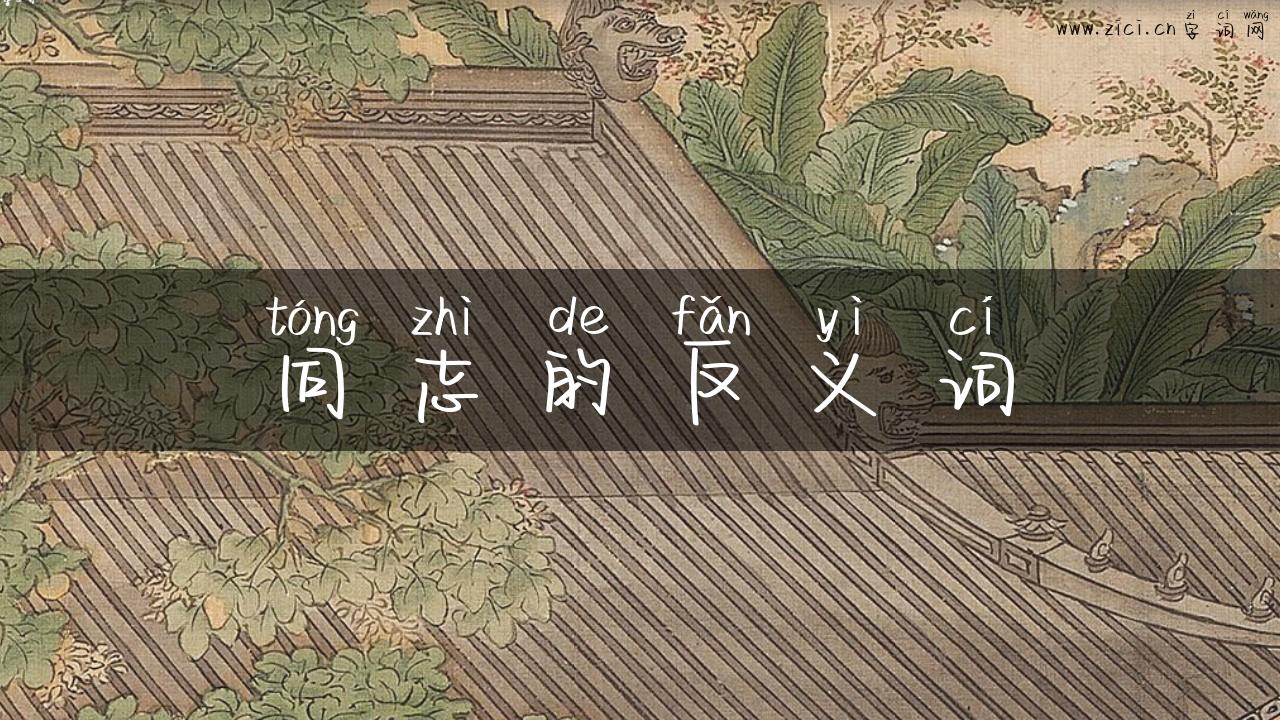 zì cí wǎng
www.zici.cn 字词网
tóng zhì de fǎn yì cí
同志的反义词